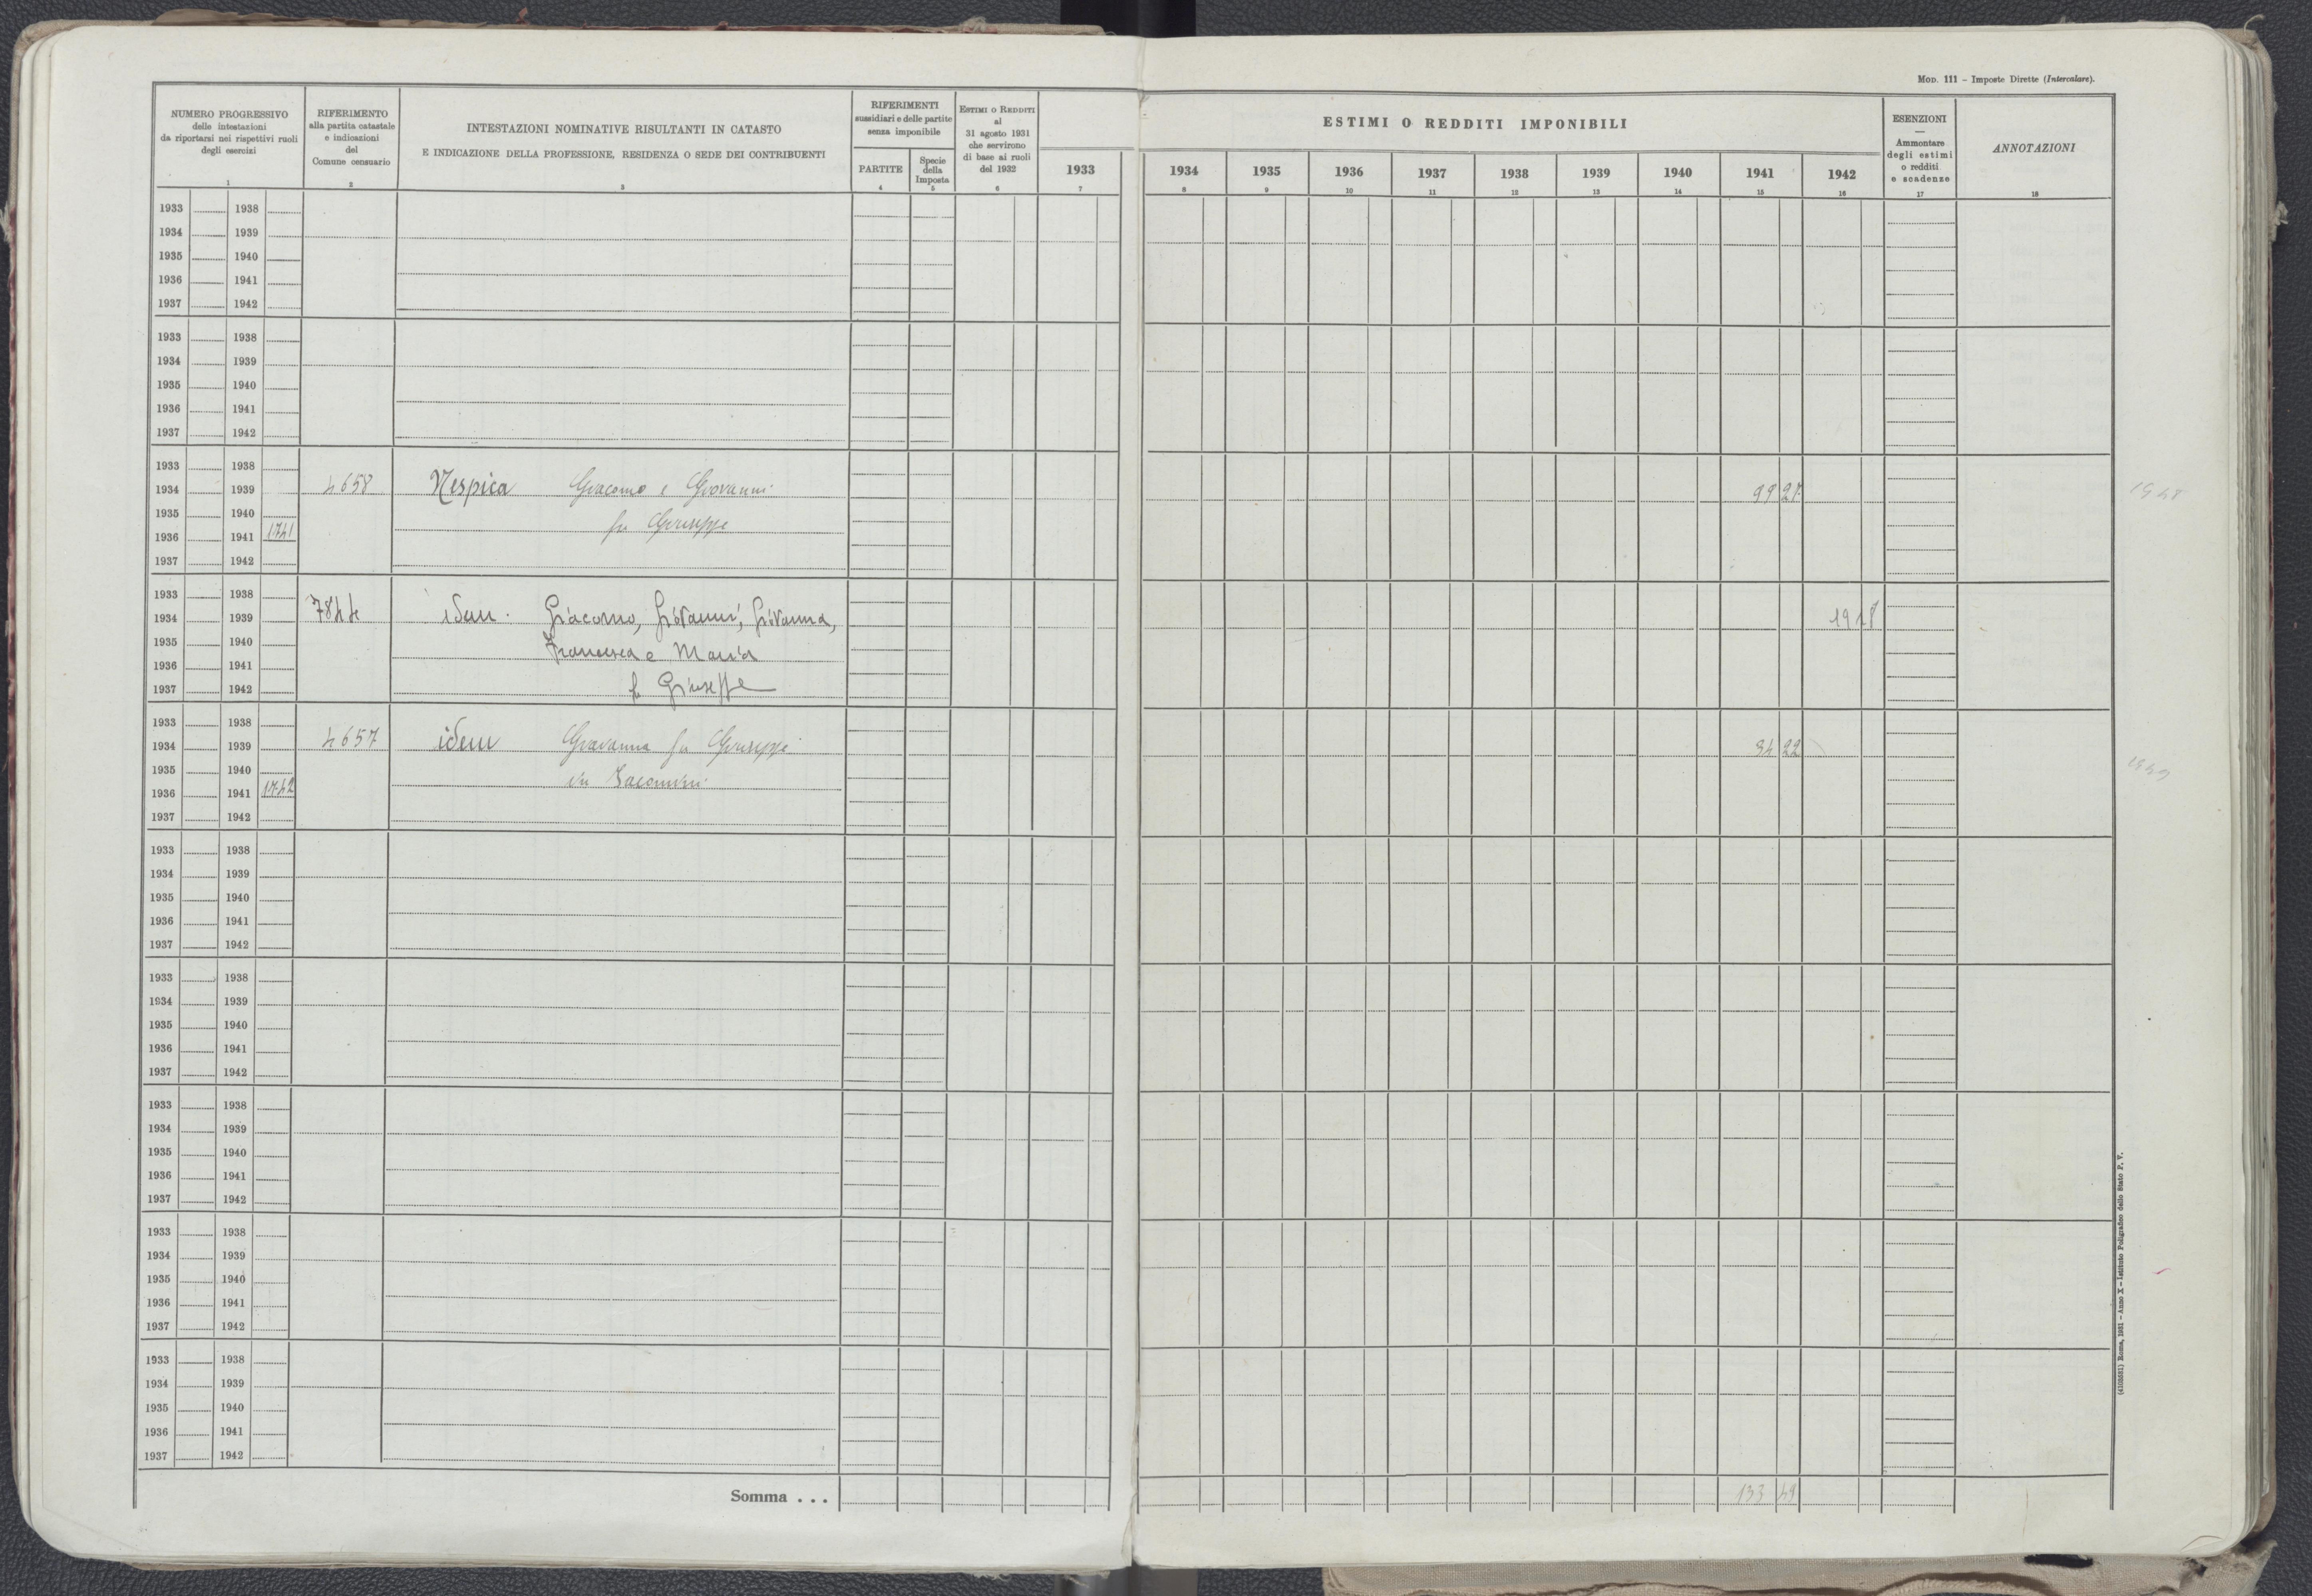 MOD. 111 – Imposte Dirette (Intercalare).
NUMERO PROGRESSIVO
delle intestazioni
da riportarsi nei rispettivi ruoli
degli esercizi
1
RIFERIMENTO
alla partita catastale
e indicazioni
del
Comune censuario
2
INTESTAZIONI NOMINATIVE RISULTANTI IN CATASTO
E INDICAZIONE DELLA PROFESSIONE, RESIDENZA O SEDE DEI CONTRIBUENTI
3
RIFERIMENTI
sussidiari e delle partite
senza imponibile
PARTITE
4
Specie
della
Imposta
5
ESTIMI O REDDITI
al
31 agosto 1931
che servirono
di base ai ruoli
del 1932
6
ESTIMI O REDDITI IMPONIBILI
1933 1934 1935 1936 1937 1938 1939 1940 1941 1942
7 8 9 10 11 12 13 14 15 16
ESENZIONI
—
Ammontare
degli estimi
o redditi
e scadenze
17
ANNOTAZIONI
18
1933 1938
1934 1939
1935 1940
1936 1941
1937 1942
1933 1938
1934 1939
1935 1940
1936 1941
1937 1942
1933 1938
1934 1939 4658 Nespica Giacomo e Giovanni 99 27
1935 1940 fu Giuseppe
1936 1941 1741
1937 1942
1933 1938
1934 1939 7844 idem Giacomo, Giovanni, Giovanna, 19 18
1935 1940 Francesca e Maria
1936 1941
1937 1942 fu Giuseppe
1933 1938
1934 1939 4657 idem Giovanna fu Giuseppe 34 22
1935 1940 in
1936 1941 1742
1937 1942
1933 1938
1934 1939
1935 1940
1936 1941
1937 1942
1933 1938
1934 1939
1935 1940
1936 1941
1937 1942
1933 1938
1934 1939
1935 1940
1936 1941
1937 1942
1933 1938
1934 1939
1935 1940
1936 1941
1937 1942
1933 1938
1934 1939
1935 1940
1936 1941
1937 1942
Somma . . . 133 49
(4103681) Roma, 1931 – Anno X – Istituto Poligrafico dello Stato P. V.